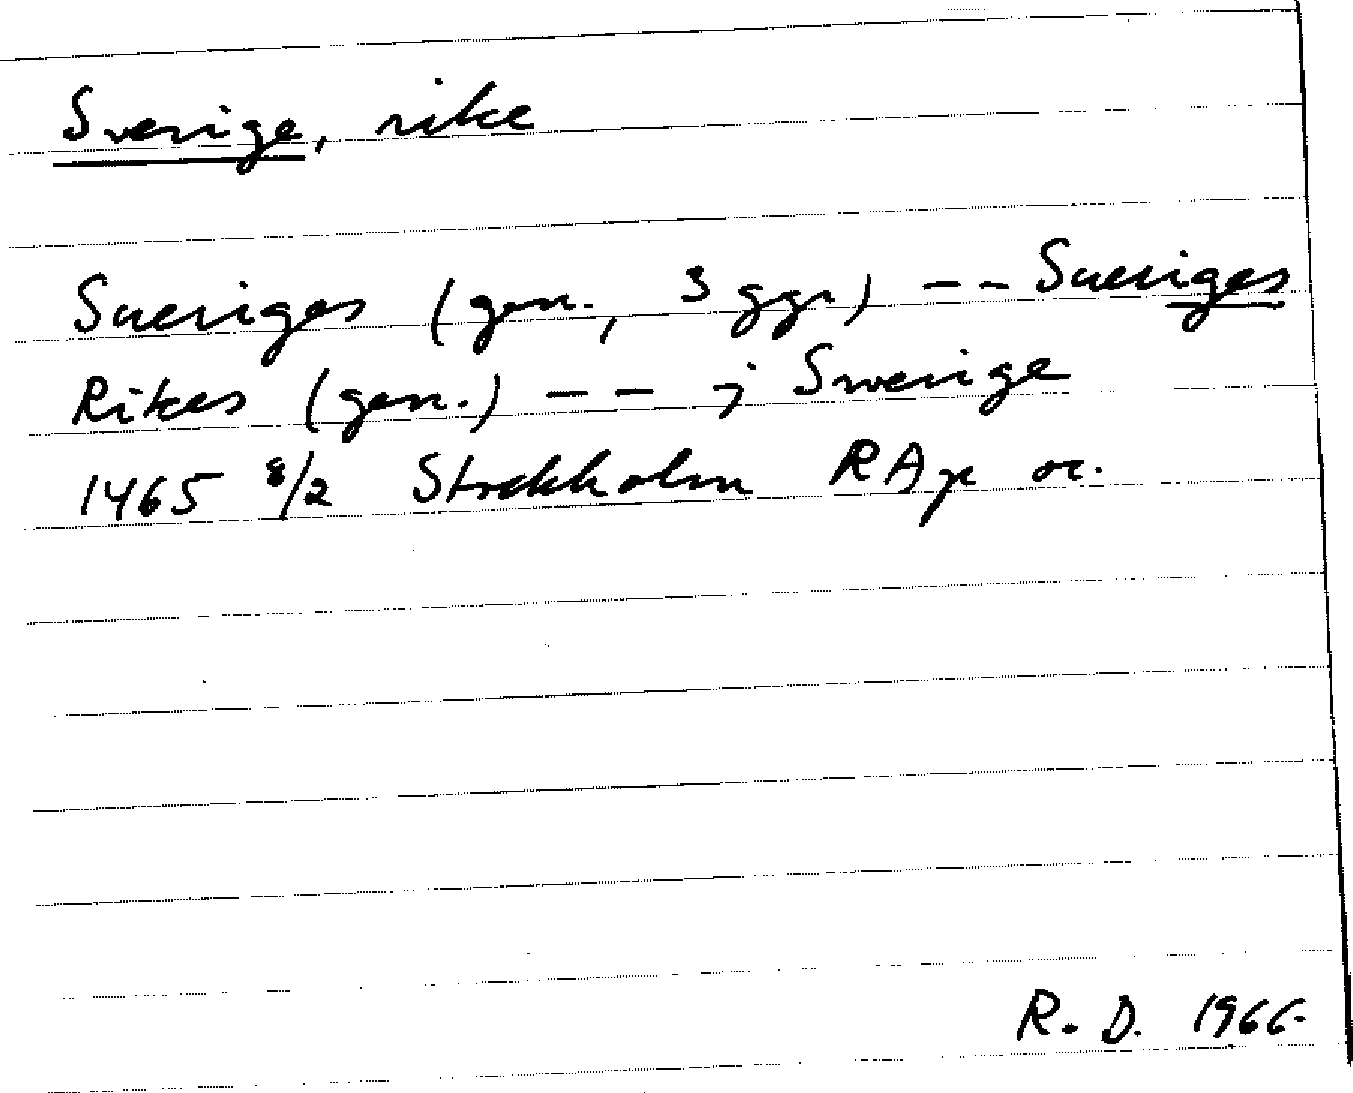 Sverige, rike
Sueriges (gen., 3 ggr) -- Sueriges
Rikes (gen.) -- j Swerige
1465 8/2 Stockholm RAp or.
R. D. 1966.